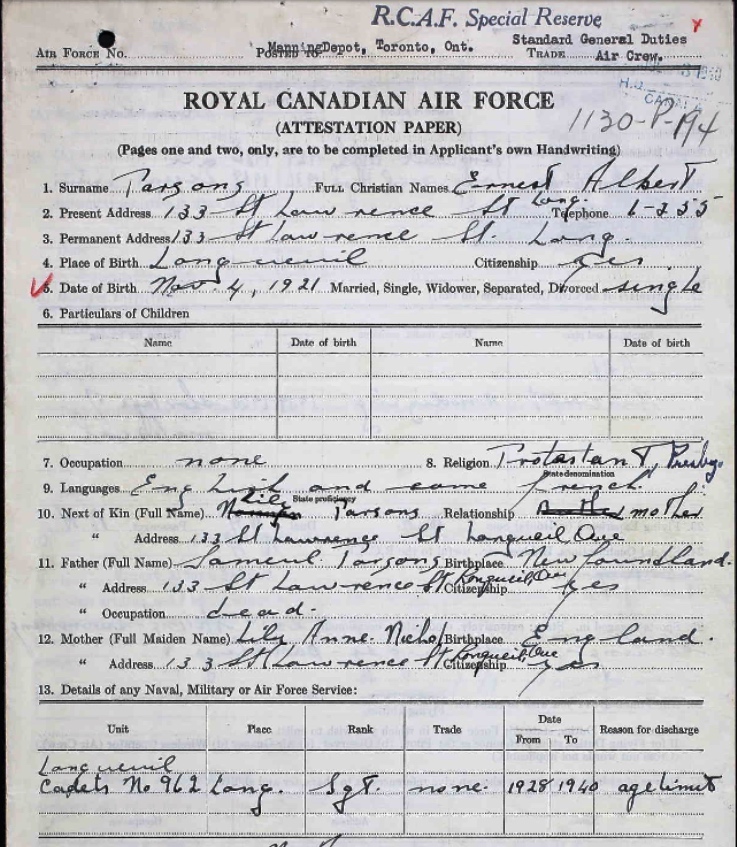 R.C.A.F. Special Reserve
AIR FORCE No. POSTED TO Manning Depot, Toronto, Ont. Standard General Duties
TRADE Air Crew.
ROYAL CANADIAN AIR FORCE
(ATTESTATION PAPER)
1130-P-194
(Pages one and two, only, are to be completed in Applicant's own Handwriting)
1. Surname Parsons FULL CHRISTIAN NAMES Ernest Albert
2. Present Address 133 St Lawrence St Long. Telephone 6-355
3. Permanent Address 133 St Lawrence St. Long.
4. Place of Birth Longueuil Citizenship yes
5. Date of Birth Nov. 4, 1921 Married, Single, Widower, Separated, Divorced single
6. Particulars of Children
Name Date of birth Name Date of birth
7. Occupation none 8. Religion Protastant, Presby.
State denomination
9. Languages English and some french.
State proficiency
10. Next of Kin (Full Name) Lily Parsons Relationship mother
" Address 133 St Lawrence St Longueil Que
11. Father (Full Name) Sameul Parsons Birthplace Newfoundland.
" Address 133 St Lawrence St Longueil, Que Citizenship yes
" Occupation dead.
12. Mother (Full Maiden Name) Lily Anne Nichol Birthplace England.
" Address 133 St Lawrence St Longueil, Que Citizenship yes
13. Details of any Naval, Military or Air Force Service:
Unit Place Rank Trade Date From To Reason for discharge
Longueuil
Cadets No 962 Long. Sgt. none. 1928 1940 age limit